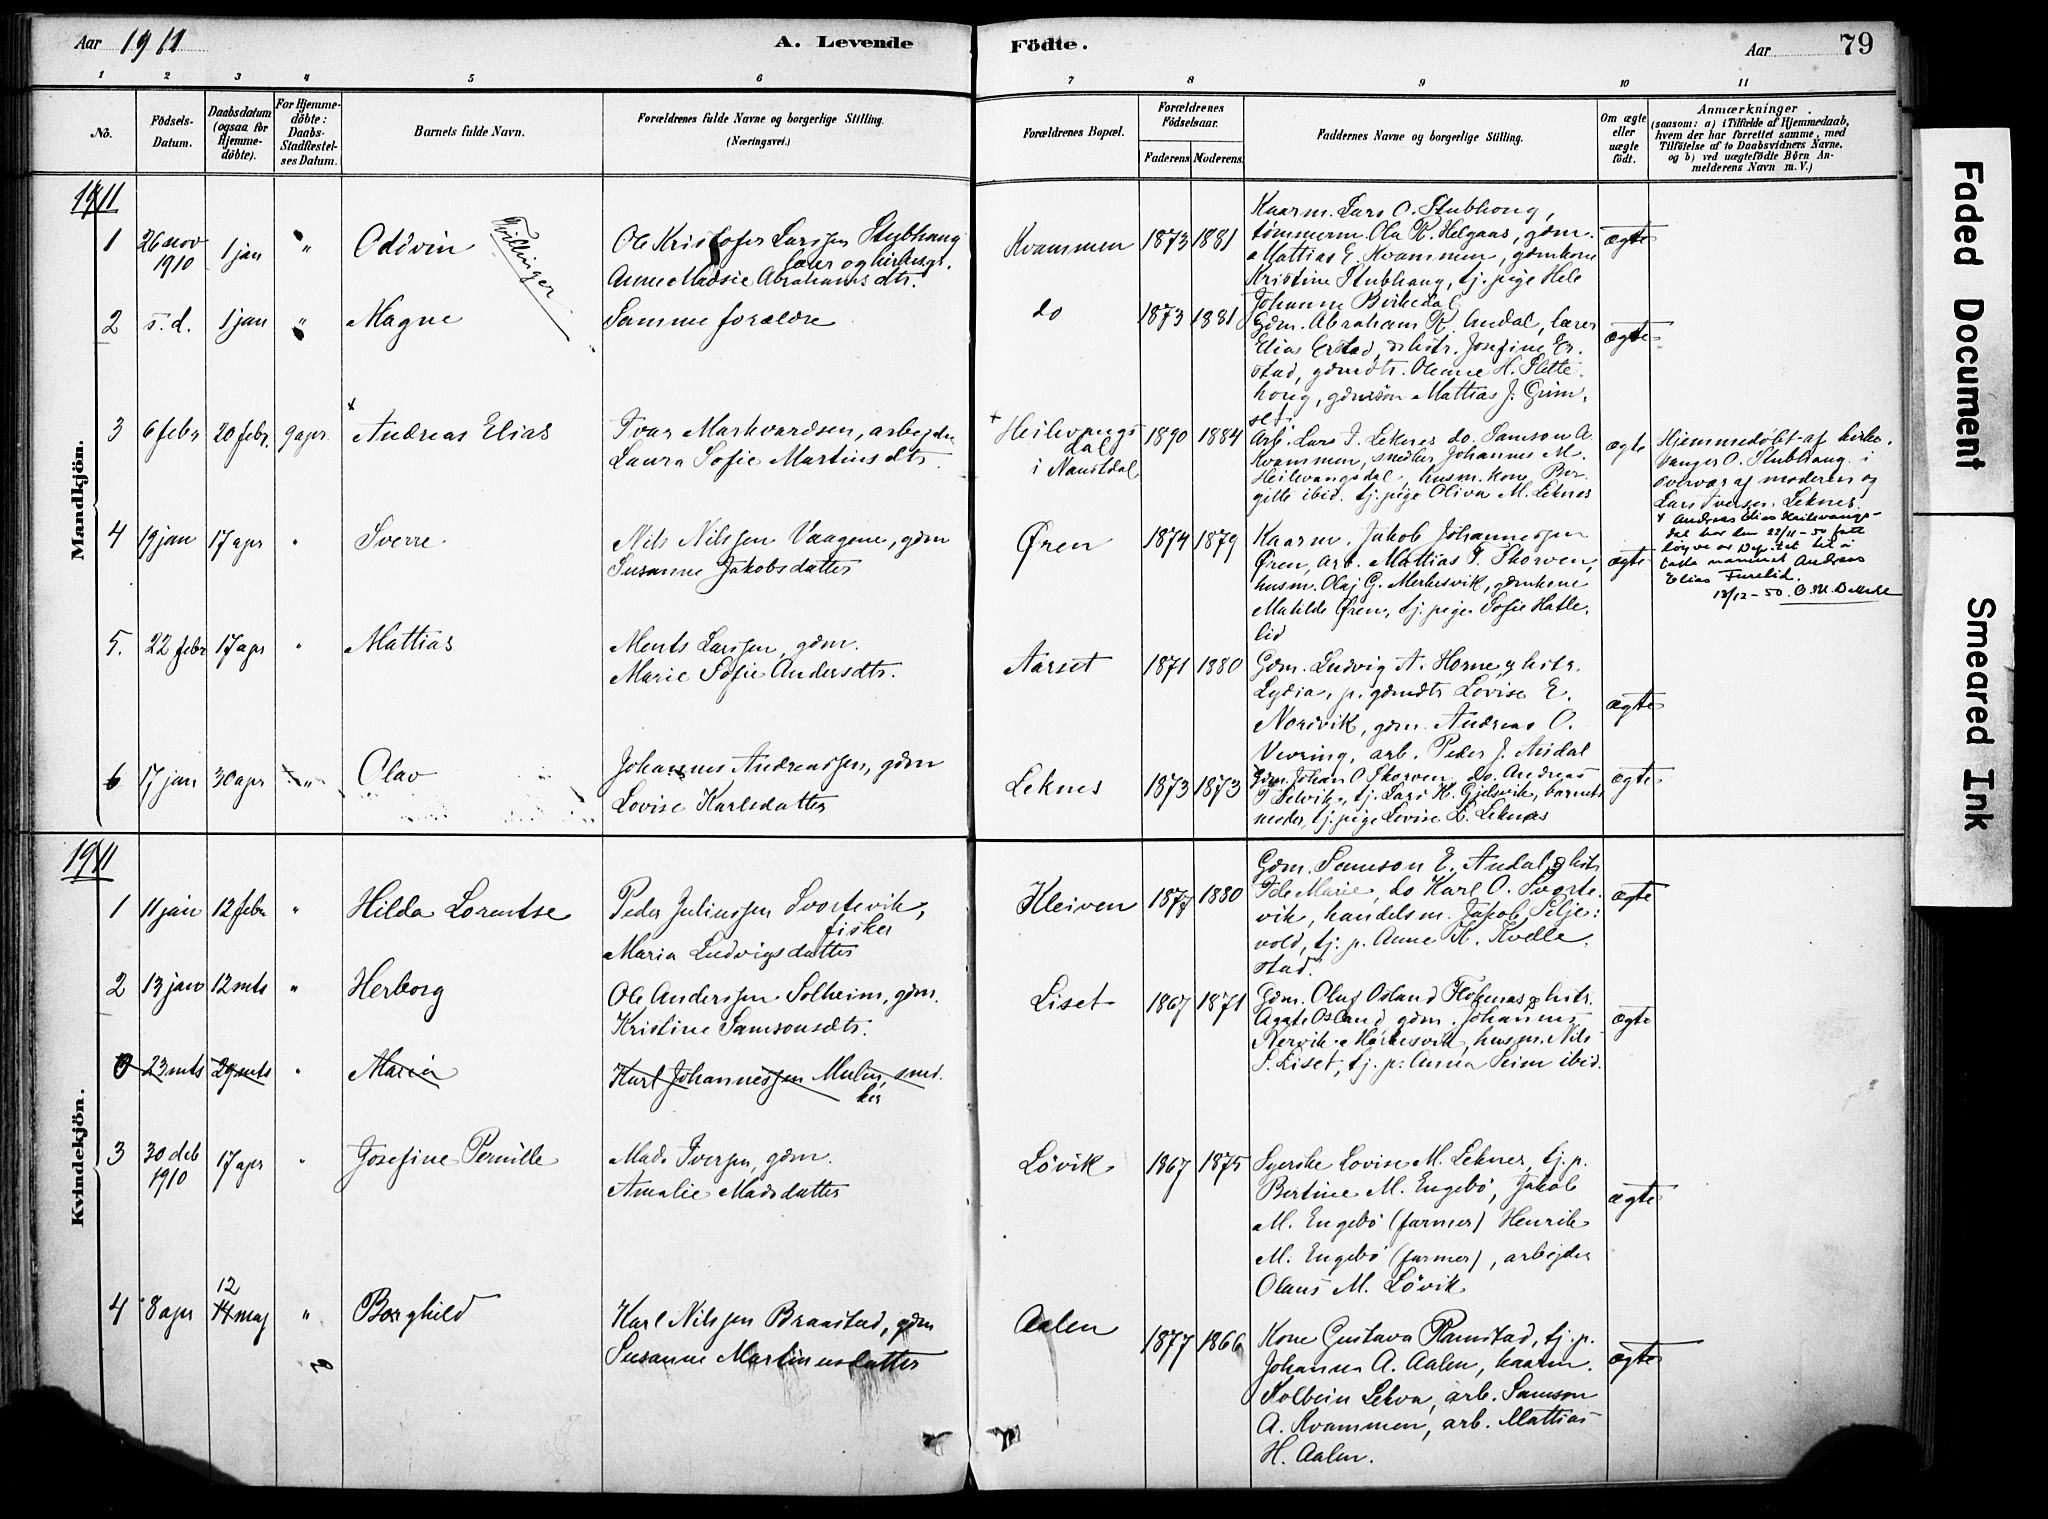 Aar 1911
A. Levende
Födte.
Aar
79
1 2 3 4 5 6 7 8 9 10 11
No.
Födsels-Datum.
Daabsdatum (ogsaa for Hjemme-döbte).
For Hjemme-döbte: Daabs-Stadfæstel-ses Datum.
Barnets fulde Navn.
Forældrenes fulde Navne og borgerlige Stilling.
(Næringsvei.)
Forældrenes Bopæl.
Forældrenes Födselsaar.
Faderens. Moderens.
Faddernes Navne og borgerlige Stilling.
Om ægte eller uægte födt.
Anmærkninger
(saasom: a) i Tilfælde af Hjemmedaab,
hvem der har forrettet samme, med
Tilföielse af to Daabsvidners Navne,
og b) ved uægtefödte Börn An-
melderens Navn m. V.)
Mandkjön.
1911
1 26 nov 1910 1 jan " Oddvin
Tvillinger
Ole Kristofer Larssen Stubhaug
lærer og kirkesgr.
Anne Madsie Abrahamsdtr.
Kvammen 1873 1881
Kaarm. Lars O. Stubhaug,
tømmerm Ola R. Helgaas, gdm.
Mattias E. Kvammen, gdmkone
Kristine Stubhaug, tj. pige Hele
Johanne Birkedal
ægte
2 s. d. 1 jan " Magne
Samme forældre
do 1873 1881
Gdm. Abraham R. Andal, lærer
Elias Erstad, & hstr. Josefine Er-
stad, gdmdtr. Oline H. Slette-
haug, gdmsön Mattias J. Grim-
set.
ægte
3 6 febr 20 febr. 9 apr. + Andreas Elias
Ivar Markvardsen, arbejder
Laura Sofie Martinsdtr.
+ Heilevangs
dal
i Naustdal
1890 1884
Arb. Lars I. Leknes do. Samson A.
Kvammen, snedker Johannes M.
Heilevangsdal, husm. kone Ber-
gitte ibid. tj. pige Oliva M. Leknes
ægte
Hjemmedøbt af kirke-
sanger O. Stubhaug i
overvær af moderen og
Lars Iversen Leknes.
+ Andreas Elias Heilevangs-
dal har den 22/11-50 fått
løyve av Dep.tet til å
taka namnet Andreas
Elias Furelid.
12/12-50.
4 19 jan 17 apr " Sverre
Nils Nilssen Vaagene, gdm
Susanne Jakobsdatter
Øren 1874 1879
Kaarm. Jakob Johannessen
Øren, arb. Mattias T. Skorven,
husm. Olaj G. Merkesvik, gdmkone
Matilde Øren, tj. pige Sofie Hatle-
lid
ægte
5. 22 febr 17 apr " Mattias
Ments Larssen, gdm.
Marie Sofie Andersdtr.
Aarset 1871 1880
Gdm. Ludvig A. Horne, & hstr.
Lydia, p. gdmdtr Lovise E.
Nordvik, gdm. Andreas O.
Vevring, arb. Peder J. Andal
ægte
6 17 jan 30 apr " Olav
Johannes Andreassen, gdm
Lovise Karlsdatter
Leknes 1873 1873
Gdm. Johan O. Skorven, do. Andreas
T. Selvik, tj. Lars H. Gjelsvik, barnets
moder, tj. pige Lovise L. Leknes
ægte
Kvindekjön.
1911
1 11 jan 12 febr " Hilda Lorentse
Peder Juliussen Svortevik,
fisker
Maria Ludvigsdatter
Kleiven 1877 1880
Gdm. Samson E. Andal & hstr
Ida Marie, do Karl O. Svorte-
vik, handelsm. Jakob Selje-
vold, tj. p. Anne K. Kvelle-
stad.
ægte
2 13 jan 12 mts " Herborg
Ole Anderssen Solheim, gdm.
Kristine Samsonsdtr.
Liset 1867 1871
Gdm. Oluf Osland Flokenæs & hstr.
Agate Osland gdm. Johannes
Nervik Merkesvik, husm. Nils
S. Liset, tj. p. Anna Seim ibid.
ægte
3 23 mts 29 mts " Maria
Karl Johannessen Mulen, sned-
ker
3 30 deb 1910 17 apr " Josefine Pernille
Mads Iversen, gdm.
Amalie Madsdatter
Lövik 1867 1875
Syerske Lovise M. Leknes, tj. p.
Bertine M. Engebö, Jakob
M. Engebö (farmer) Henrik
M. Engebö (farmer), arbejder
Olaus M. Lövik
ægte
4 8 apr 12 14 maj " Borghild
Karl Nilssen Braastad, gdm
Susanne Martinusdatter
Aalen 1877 1866
Kone Gustava Ramstad, tj. p.
Johanna A. Aalen, kaarm.
Kolbein Lekva, arb. Samson
A. Kvammen, arb. Mattias
H. Aalen.
ægte
Faded Document
Smeared Ink